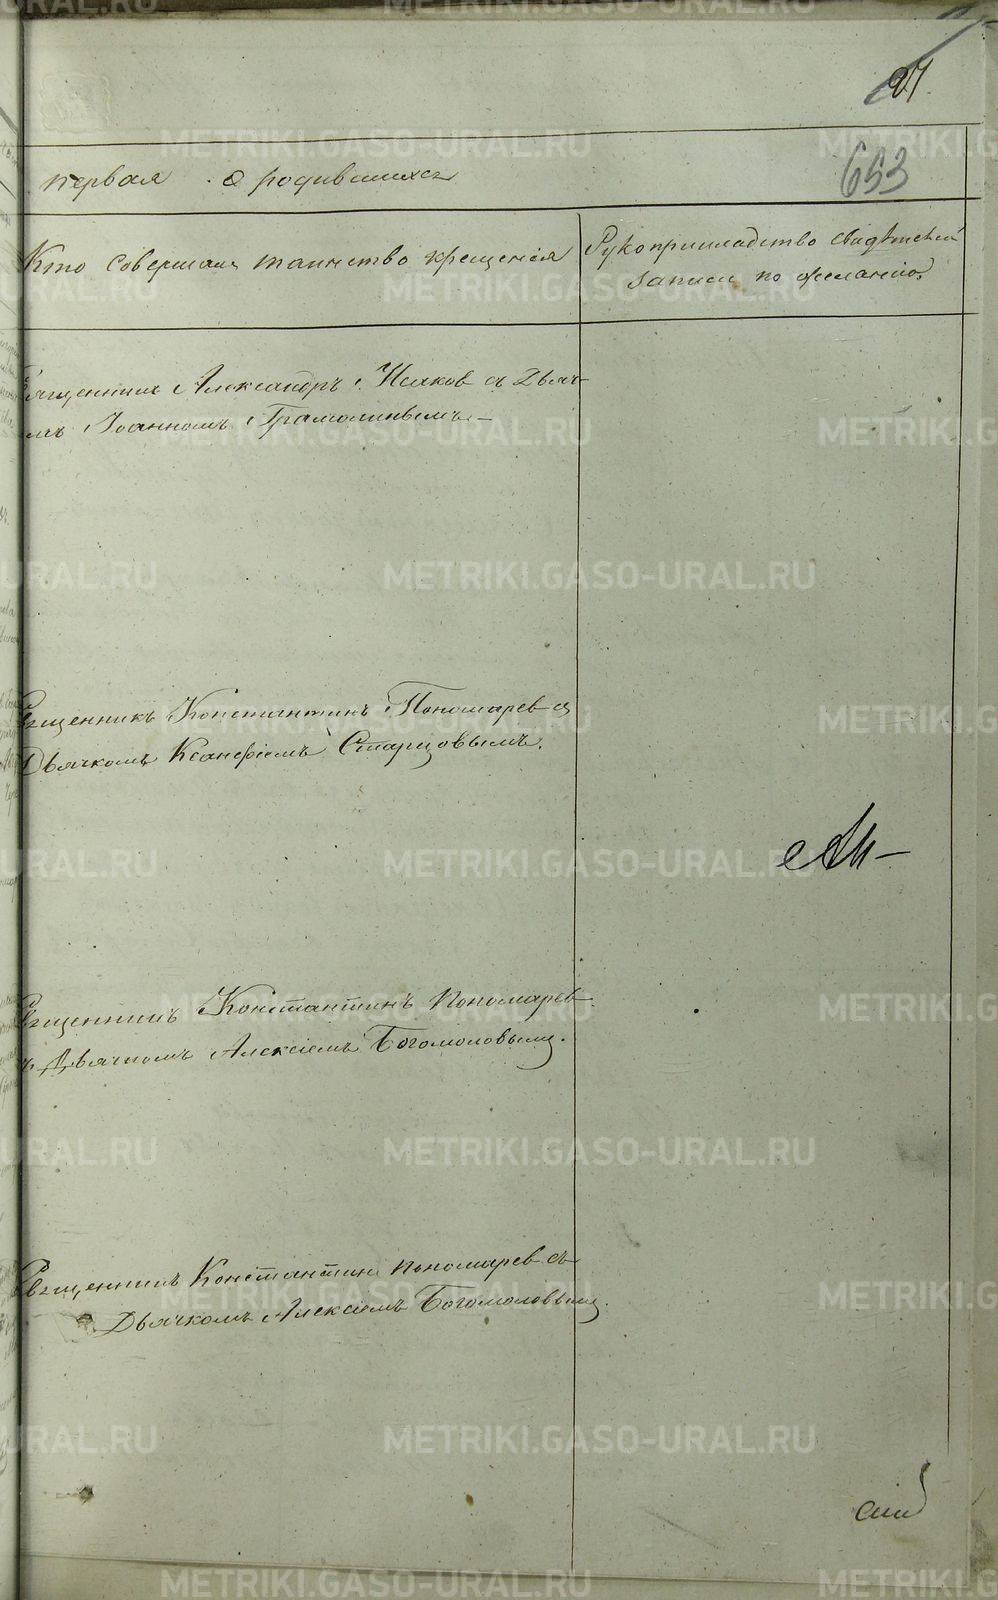 27.
653
первая о родившихся
Кто совершалъ таинство крещенія
Рукоприкладство свидѣтелей
записи по желанію.
Священникъ Александръ Исаковъ съ Дьяч-
мъ Іоанномъ
Священникъ Константинъ Пономаревъ съ
Дьячкомъ Ксанфіемъ Старцовымъ.
Священникъ Константинъ Пономаревъ
съ Дьячкомъ Алексіемъ Богомоловымъ.
Священникъ Константинъ Пономаревъ съ
Дьячкомъ Алексіемъ Богомоловымъ.
METRIKI.GASO-URAL.RU